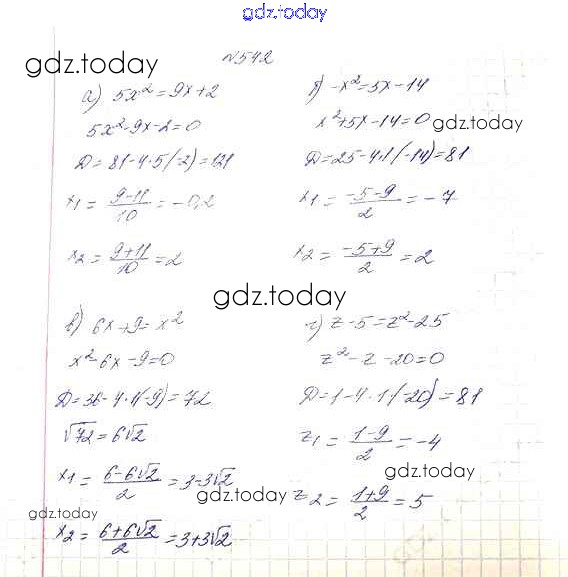 gdz.today
N542
gdz.today
а) 5x² = 9x + 2
5x² - 9x - 2 = 0
D = 81 - 4 · 5 (-2) = 121
x1 = (9 - 11)/10 = -0,2
x2 = (9 + 11)/10 = 2
б) -x² = 5x - 14
x² + 5x - 14 = 0
gdz.today
D = 25 - 4 · 1 (-14) = 81
x1 = (-5 - 9)/2 = -7
x2 = (-5 + 9)/2 = 2
gdz.today
в) 6x + 9 = x²
x² - 6x - 9 = 0
D = 36 - 4 · 1(-9) = 72
√72 = 6√2
x1 = (6 - 6√2)/2 = 3 - 3√2
gdz.today
x2 = (6 + 6√2)/2 = 3 + 3√2
г) z - 5 = z² - 25
z² - z - 20 = 0
D = 1 - 4 · 1 (-20) = 81
gdz.today
z1 = (1 - 9)/2 = -4
gdz.today
z2 = (1 + 9)/2 = 5